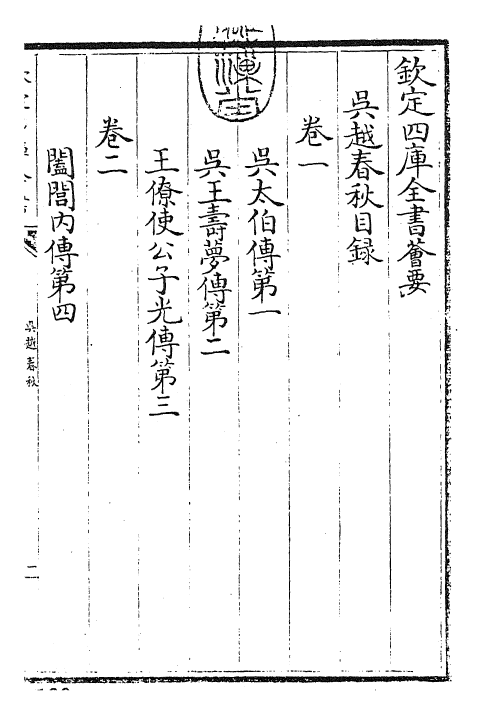 欽定四庫全書薈要
吳越春秋目録
卷一
吳太伯傳第一
吳王壽夢傳第二
王僚使公子光傳第三
卷二
闔閭内傳第四
吳越春秋
二